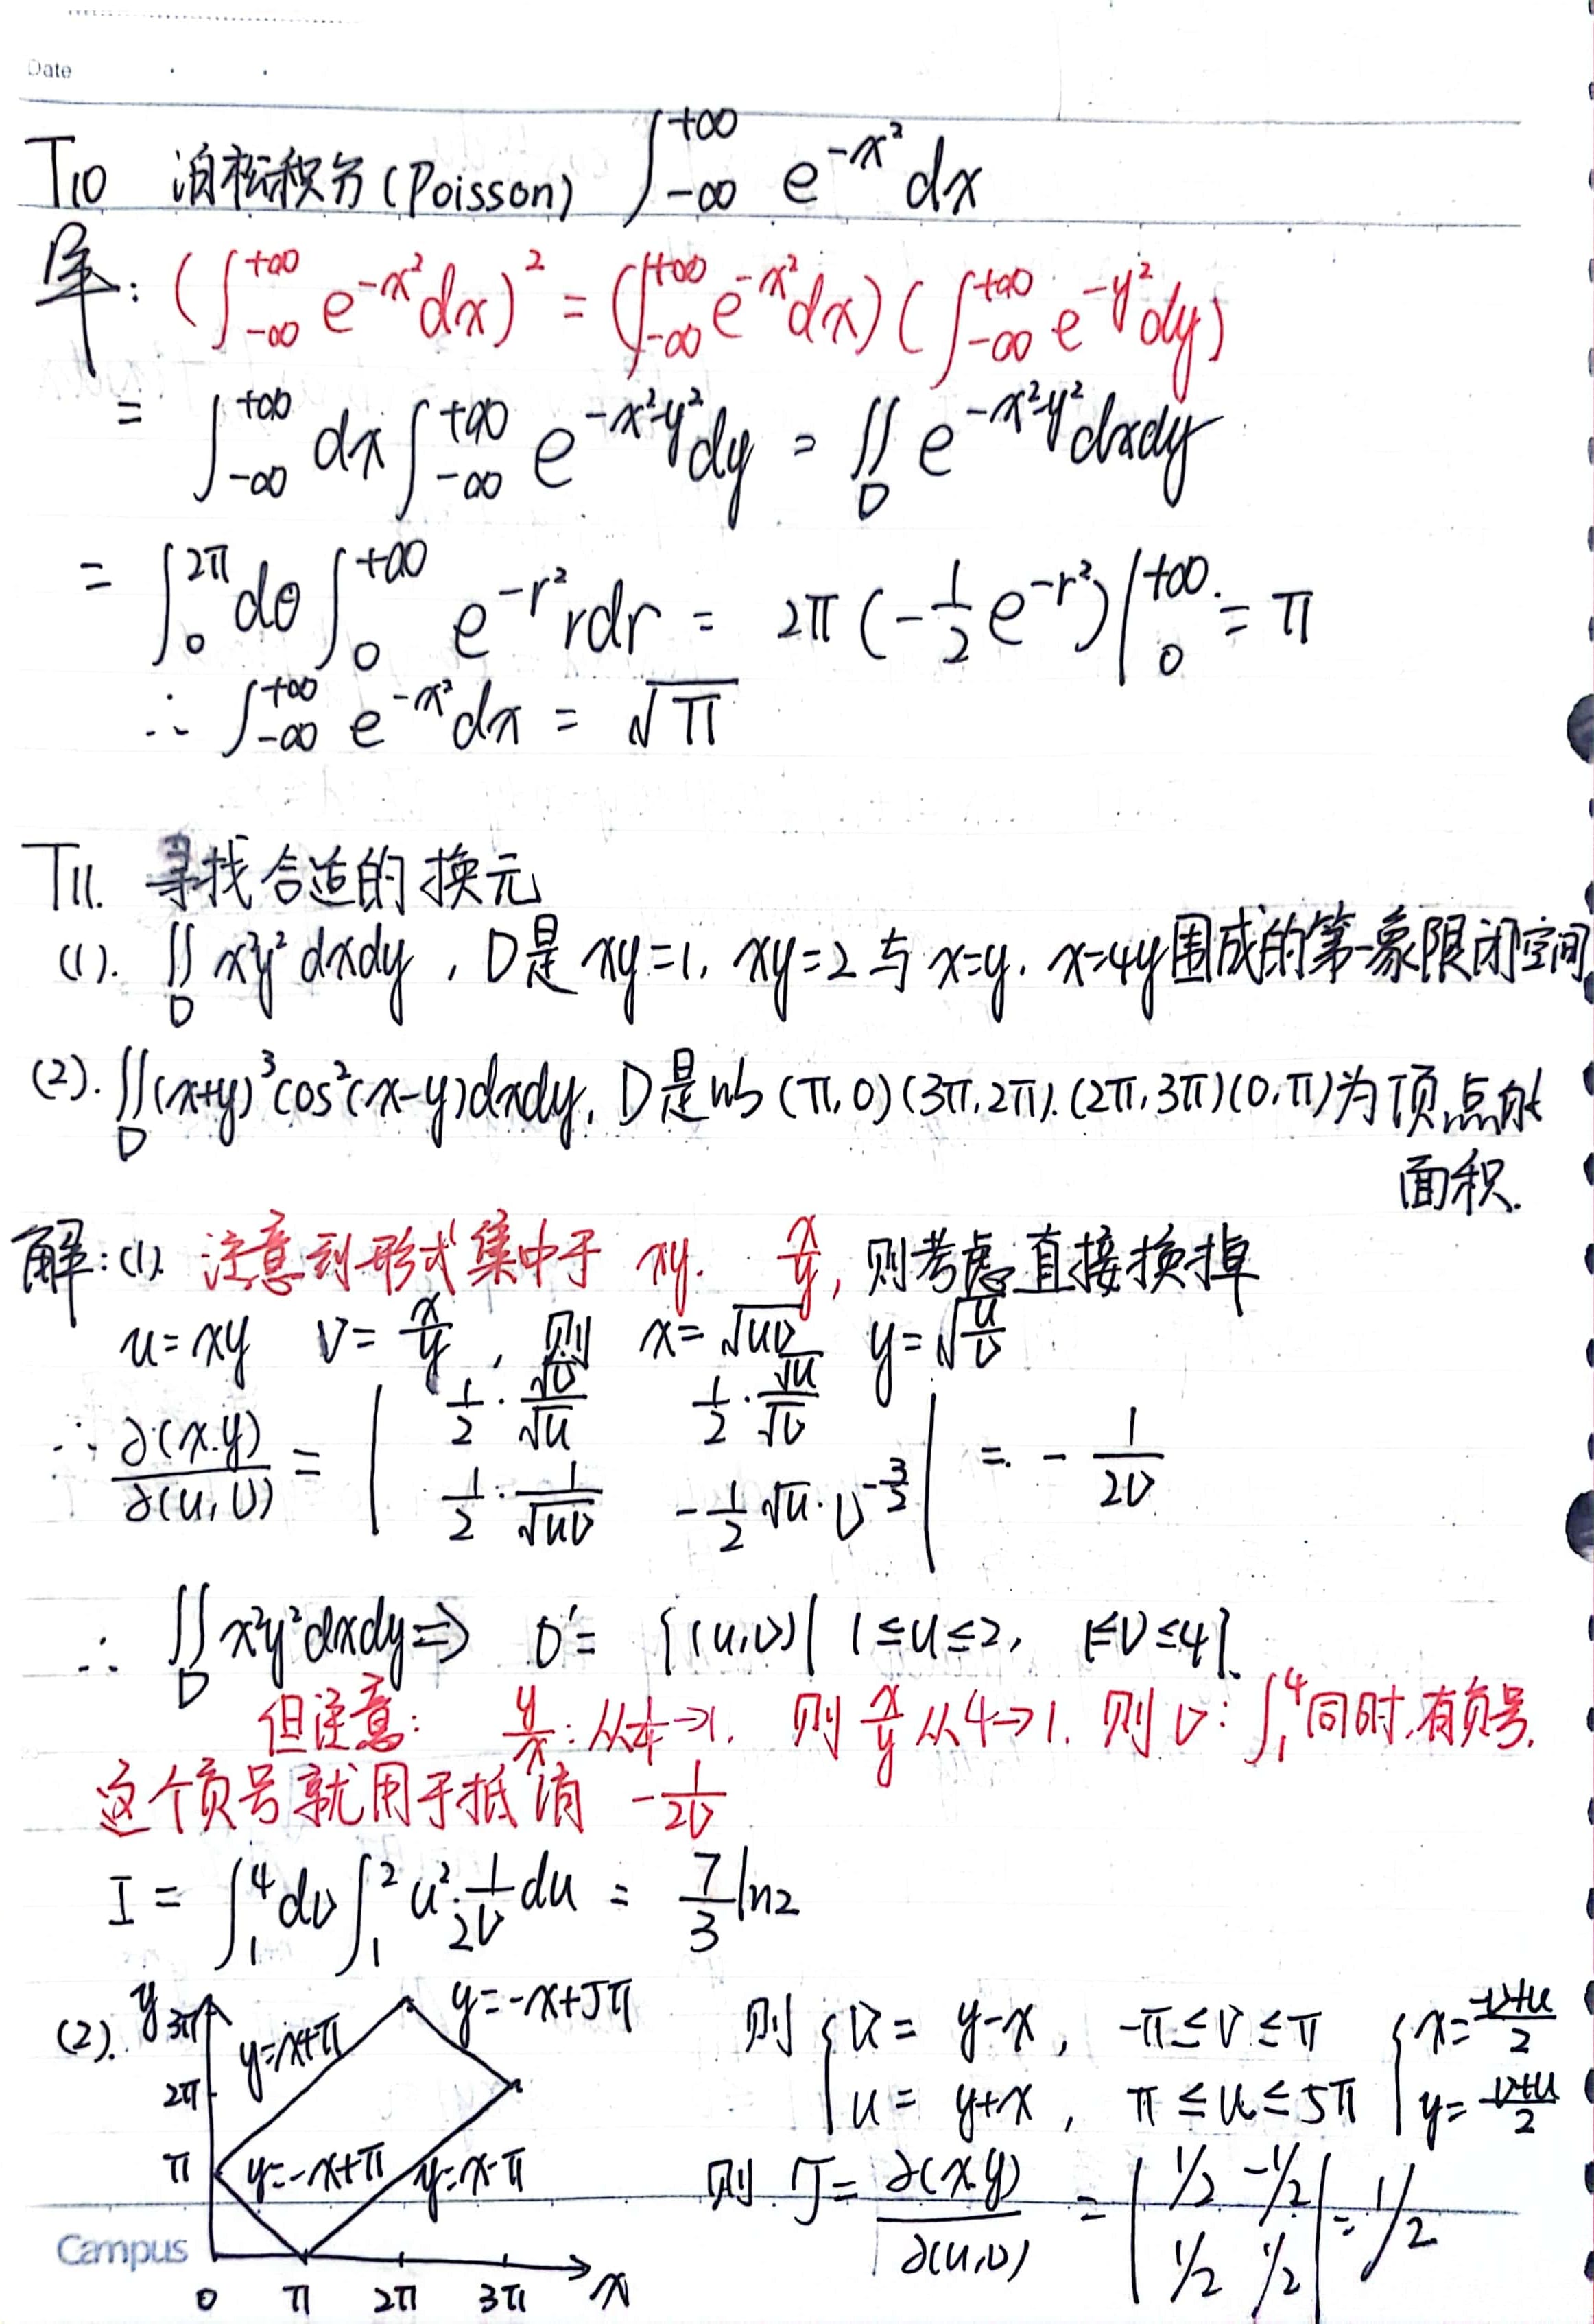 Date
T10 泊松积分(Poisson) ∫_{-∞}^{+∞} e^{-x²} dx
解: (∫_{-∞}^{+∞} e^{-x²} dx)² = (∫_{-∞}^{+∞} e^{-x²} dx)(∫_{-∞}^{+∞} e^{-y²} dy)
= ∫_{-∞}^{+∞} dx ∫_{-∞}^{+∞} e^{-x²-y²} dy = ∬_D e^{-x²-y²} dxdy
= ∫_0^{2π} dθ ∫_0^{+∞} e^{-r²} r dr = 2π (-1/2 e^{-r²}) |_0^{+∞} = π
∴ ∫_{-∞}^{+∞} e^{-x²} dx = √π
T11. 寻找合适的换元
(1). ∬_D x²y² dxdy, D是 xy=1, xy=2 与 x=y, x=4y围成的第一象限闭空间
(2). ∬_D (x+y)³cos²(x-y)dxdy, D是以(π,0)(3π,2π).(2π,3π)(0,π)为顶点的
面积.
解:(1) 注意到形式集中于 xy. x/y, 则考虑直接换掉
u=xy v=x/y, 则 x=√(uv) y=√(u/v)
∴ ∂(x.y)/∂(u,v) = | 1/2·√v/√u 1/2·√u/√v ; 1/2·1/√(uv) -1/2 √u·v^{-3/2} | = -1/(2v)
∴ ∬_D x²y² dxdy ⇒ D'= {(u,v)| 1≤u≤2, 1≤v≤4}.
但注意: y/x: 从1/4→1. 则 x/y 从4→1. 则 v: ∫_1^4 同时有负号.
这个负号就用于抵消 -1/(2v)
I = ∫_1^4 dv ∫_1^2 u²·1/(2v) du = 7/3 ln2
(2). y 3π y=x+π y=-x+5π 则 { v = y-x, -π≤v≤π { x=(-v+u)/2
2π u = y+x, π≤u≤5π y=(v+u)/2
π y=-x+π y=x-π 则 J= ∂(x.y)/∂(u,v) = | 1/2 -1/2 ; 1/2 1/2 | = 1/2
Campus
0 π 2π 3π x